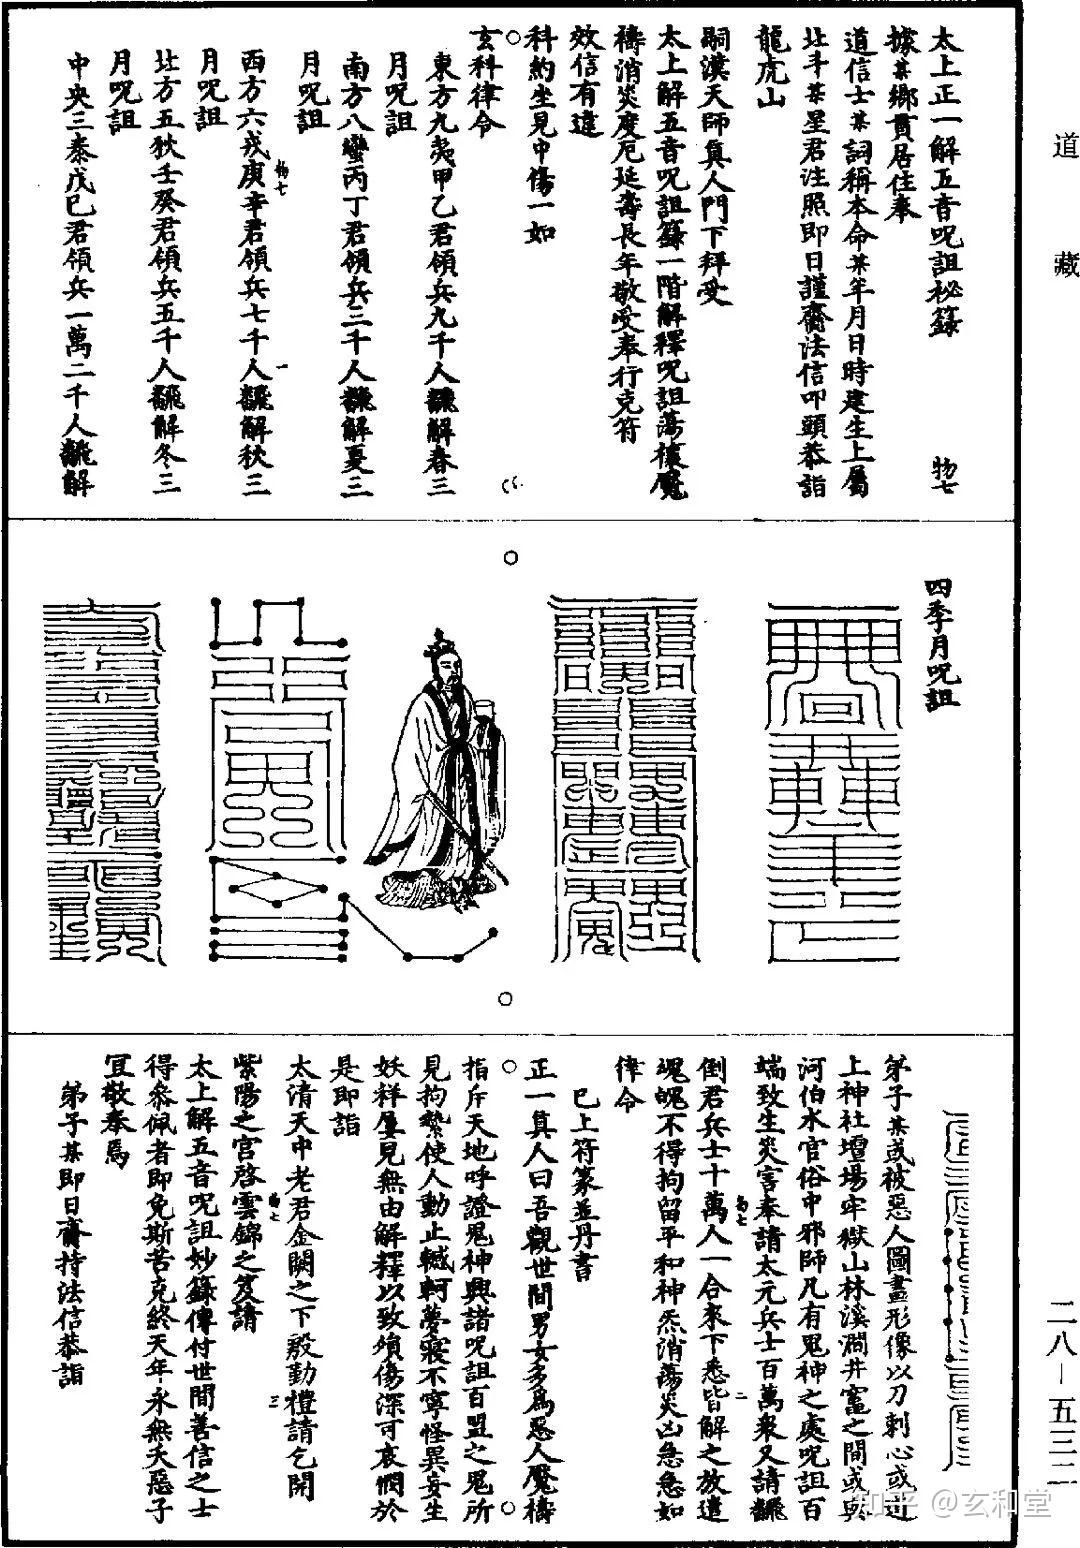 道藏
太上正一解五音呪詛秘籙
物七
據某鄉貫居住奉
道信士某詞稱本命某年月日時建生上屬
北斗某星君注照即日謹齎法信叩頭恭詣
龍虎山
嗣漢天師真人門下拜受
太上解五音呪詛籙一階解釋呪詛蕩穰魘
禱消災度厄延壽長年敬受奉行克符
效信有違
科約坐見中傷一如
玄科律令
東方九夷甲乙君領兵九千人解春三
月呪詛
南方八蠻丙丁君領兵三千人解夏三
月呪詛
物七
一
西方六戎庚辛君領兵七千人解秋三
月呪詛
北方五狄壬癸君領兵五千人解冬三
月呪詛
中央三秦戊己君領兵一萬二千人解
四季月呪詛
弟子某或被惡人圖畫形像以刀刺心或近
上神社壇場牢獄山林溪澗井竈之間或與
河伯水官俗中邪師凡有鬼神之處呪詛百
端致生災害奉請太元兵士百萬衆又請
物七
二
倒君兵士十萬人一合來下悉皆解之放遣
魂魄不得拘留平和神炁消蕩災凶急急如
律令
已上符篆並丹書
正一真人曰吾觀世間男女多爲惡人魘禱
指斥天地呼證鬼神興諸呪詛百盟之鬼所
見拘繫使人動止轗軻夢寐不寧怪異妄生
妖祥屢見無由解釋以致殞傷深可哀憫於
是即詣
太清天中老君金闕之下殷勤禮請乞開
物七
三
紫陽之宮啓雲錦之笈請
太上解五音呪詛妙籙傳付世間善信之士
得參佩者即免斯苦克終天年永無夭惡子
宜敬奉焉
弟子某即日齎持法信恭詣
二八—五三二
知乎 @玄和堂